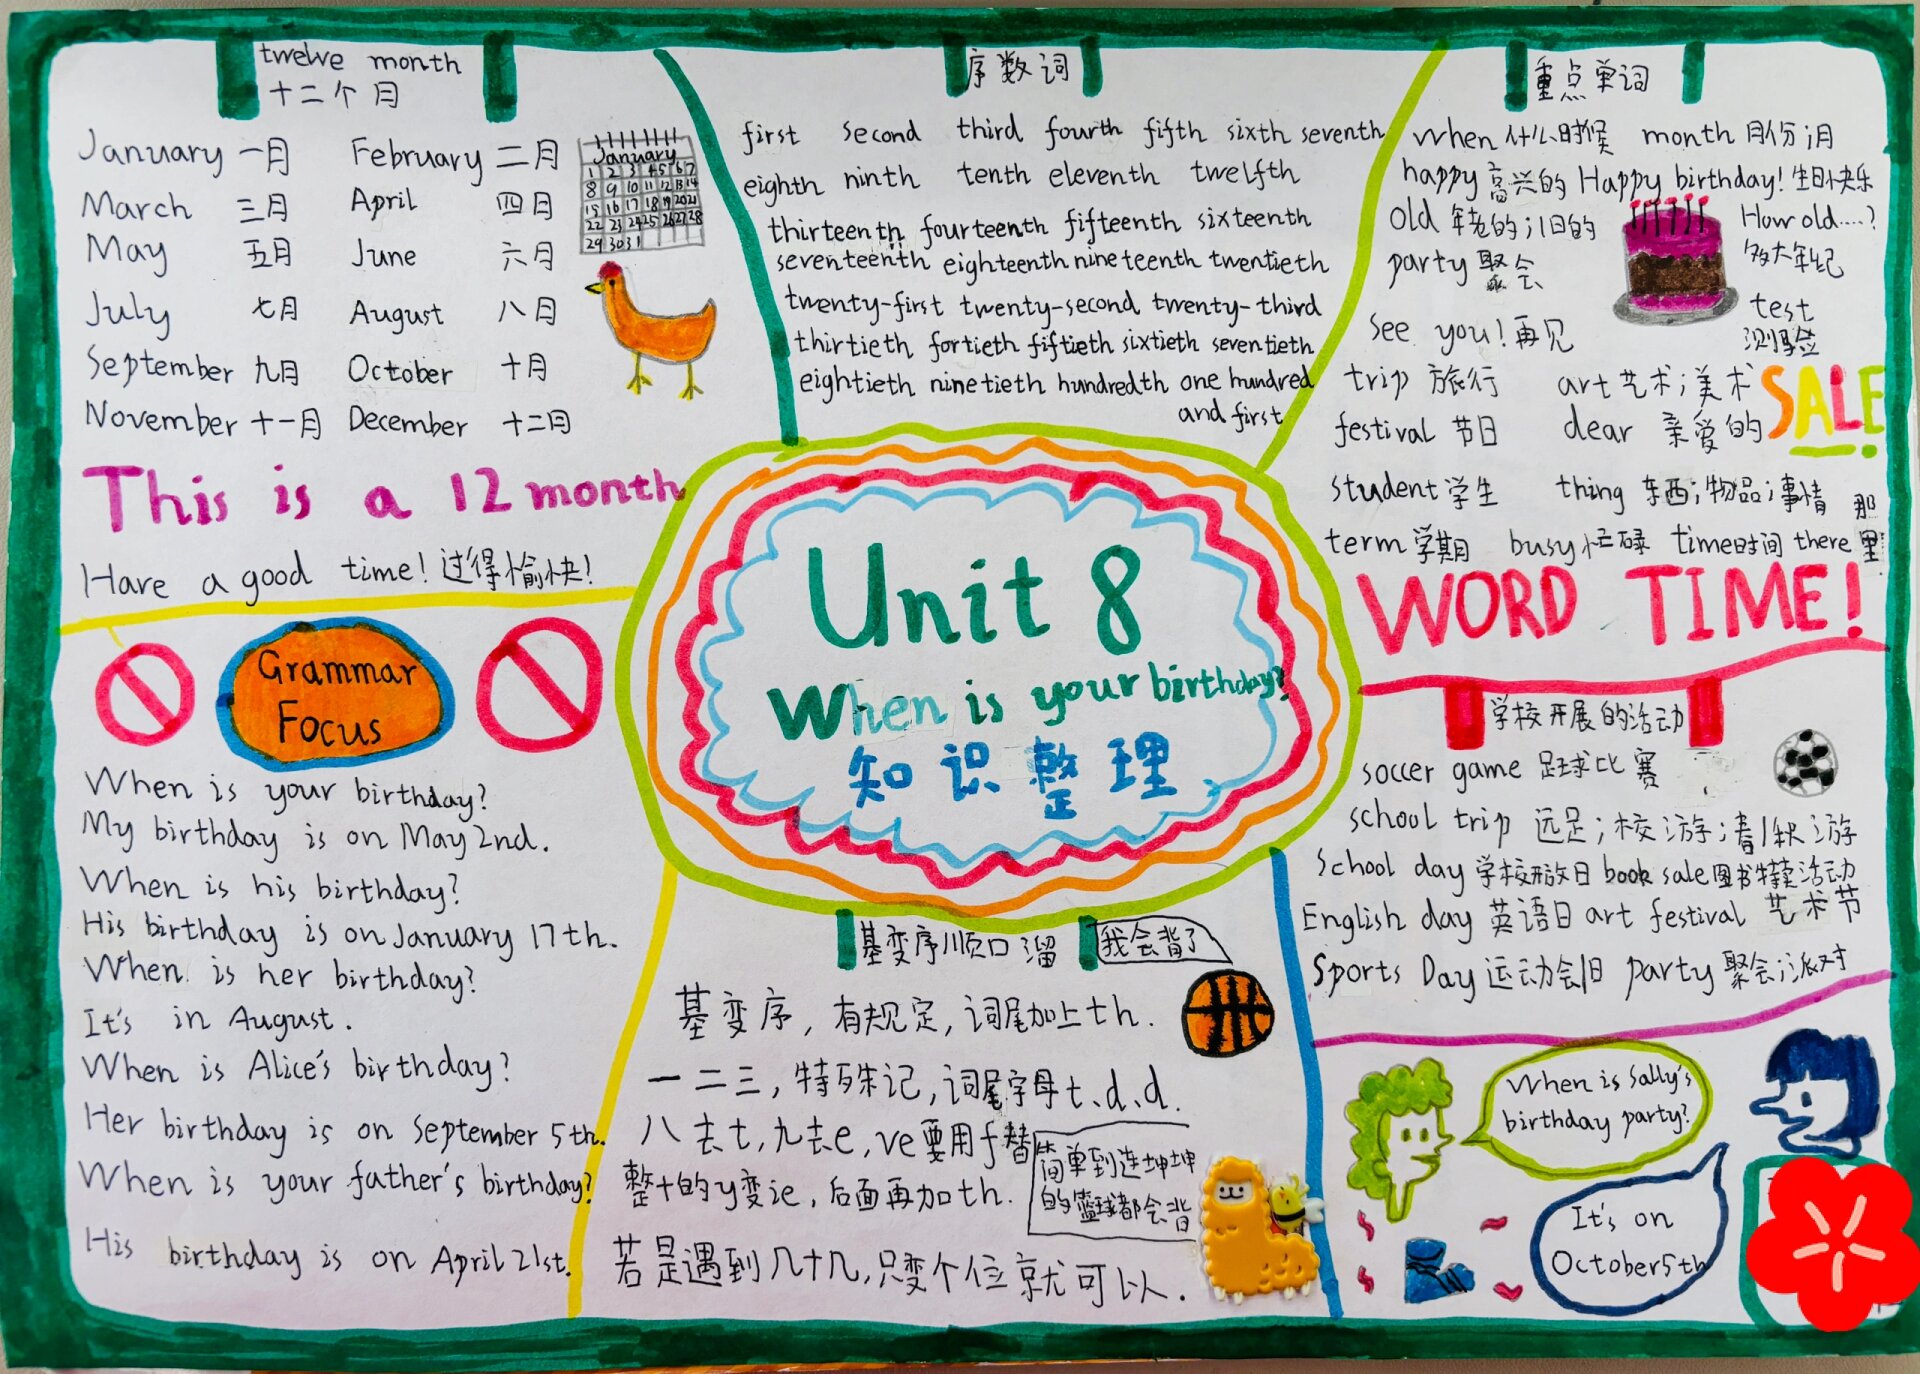 twelve month
十二个月
January 一月 February 二月
March 三月 April 四月
May 五月 June 六月
July 七月 August 八月
September 九月 October 十月
November 十一月 December 十二月
January
1 2 3 4 5 6 7
8 9 10 11 12 13 14
15 16 17 18 19 20 21
22 23 24 25 26 27 28
29 30 31
This is a 12 month
Have a good time! 过得愉快!
序数词
first second third fourth fifth sixth seventh
eighth ninth tenth eleventh twelfth
thirteenth fourteenth fifteenth sixteenth
seventeenth eighteenth nineteenth twentieth
twenty-first twenty-second twenty-third
thirtieth fortieth fiftieth sixtieth seventieth
eightieth ninetieth hundredth one hundred
and first
重点单词
when 什么时候 month 月份;月
happy 高兴的 Happy birthday! 生日快乐
old 年老的;旧的 How old....?
多大年纪
party 聚会
test
测验
see you! 再见
trip 旅行 art 艺术;美术
SALE
festival 节日 dear 亲爱的
student 学生 thing 东西;物品;事情
term 学期 busy 忙碌 time 时间 there 那里
WORD TIME!
Unit 8
When is your birthday?
知识整理
Grammar
Focus
When is your birthday?
My birthday is on May 2nd.
When is his birthday?
His birthday is on January 17th.
When is her birthday?
It's in August.
When is Alice's birthday?
Her birthday is on September 5th.
When is your father's birthday?
His birthday is on April 21st.
基变序顺口溜
我会背了
基变序,有规定,词尾加上th.
一二三,特殊记,词尾字母t、d、d.
八去t,九去e,ve要用f替
整十的y变ie,后面再加th.
若是遇到几十几,只变个位就可以.
简单到连坤坤
的篮球都会背
学校开展的活动
soccer game 足球比赛
school trip 远足;校游;春/秋游
School day 学校开放日 book sale 图书特卖活动
English day 英语日 art festival 艺术节
Sports Day 运动会日 party 聚会;派对
When is Sally's
birthday party?
It's on
October 5th